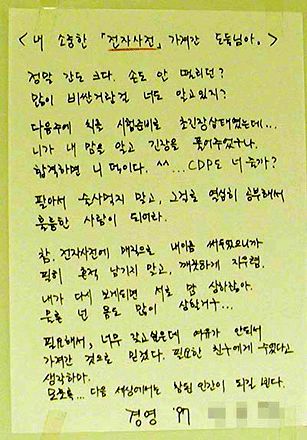 < 내 소중한 「전자사전」 가져간 도둑님아. >
정말 간도 크다. 손도 안 떨리던?
많이 비싼거란건 너도 알고있지?
다음주에 치를 시험준비로 초긴장상태였는데...
니가 내 맘을 알고 긴장을 풀어주었구나.
합격하면 니 덕이다. ^^ ...CDP도 너 줄까?
팔아서 술사먹지 말고, 그걸로 열심히 공부해서
훌륭한 사람이 되어라.
참, 전자사전에 매직으로 내이름 써두었으니까
필히 흔적 남기지 말고, 깨끗하게 지우렴.
내가 다시 보게되면 서로 맘 상하잖아.
물론 넌 몸도 많이 상할거구...
필요해서, 너무 갖고싶은데 여유가 안되서
가져간 것으로 믿겠다. 필요한 친구에게 주었다고
생각하마.
모쪼록... 다음 세상에서는 참된 인간이 되길 빈다.
경영 '97